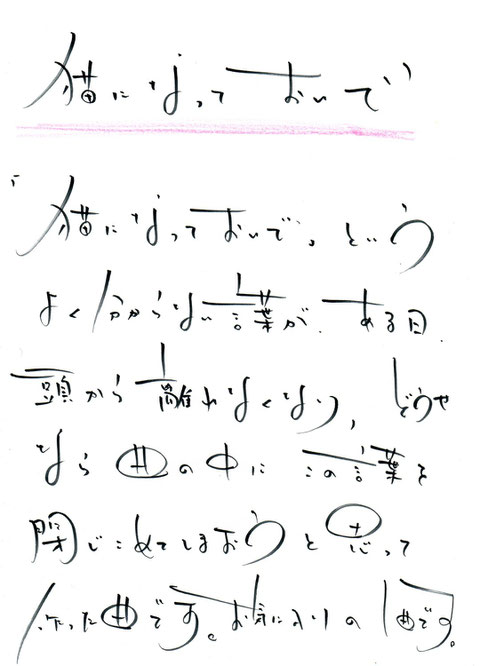 猫になっておいで
「猫になっておいで」という
よく分からない言葉が、ある日
頭から離れなくなり、どうせ
なら曲の中にこの言葉を
閉じこめてしまおうと思って
作った曲です。お気に入りの曲です。